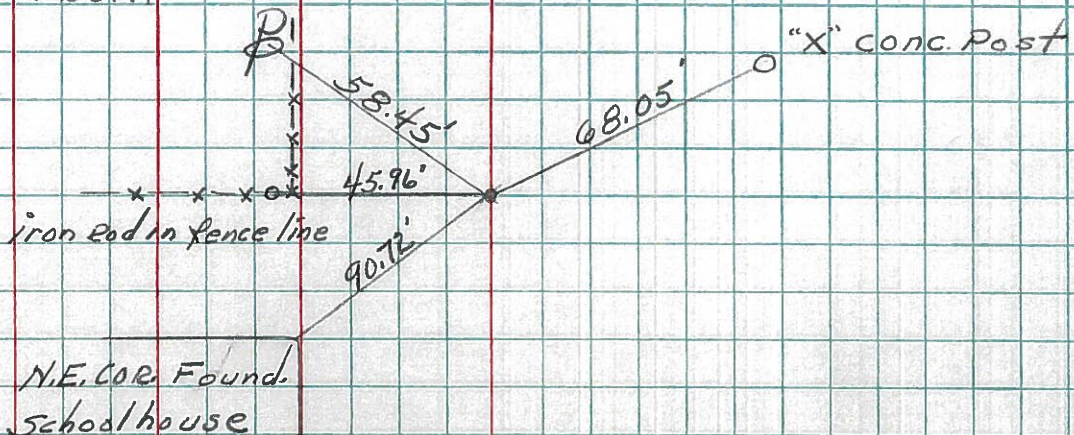 "X" conc. Post
58.45'
68.05'
45.96'
iron rod in fence line
90.72'
N.E. COR. Found.
Schoolhouse